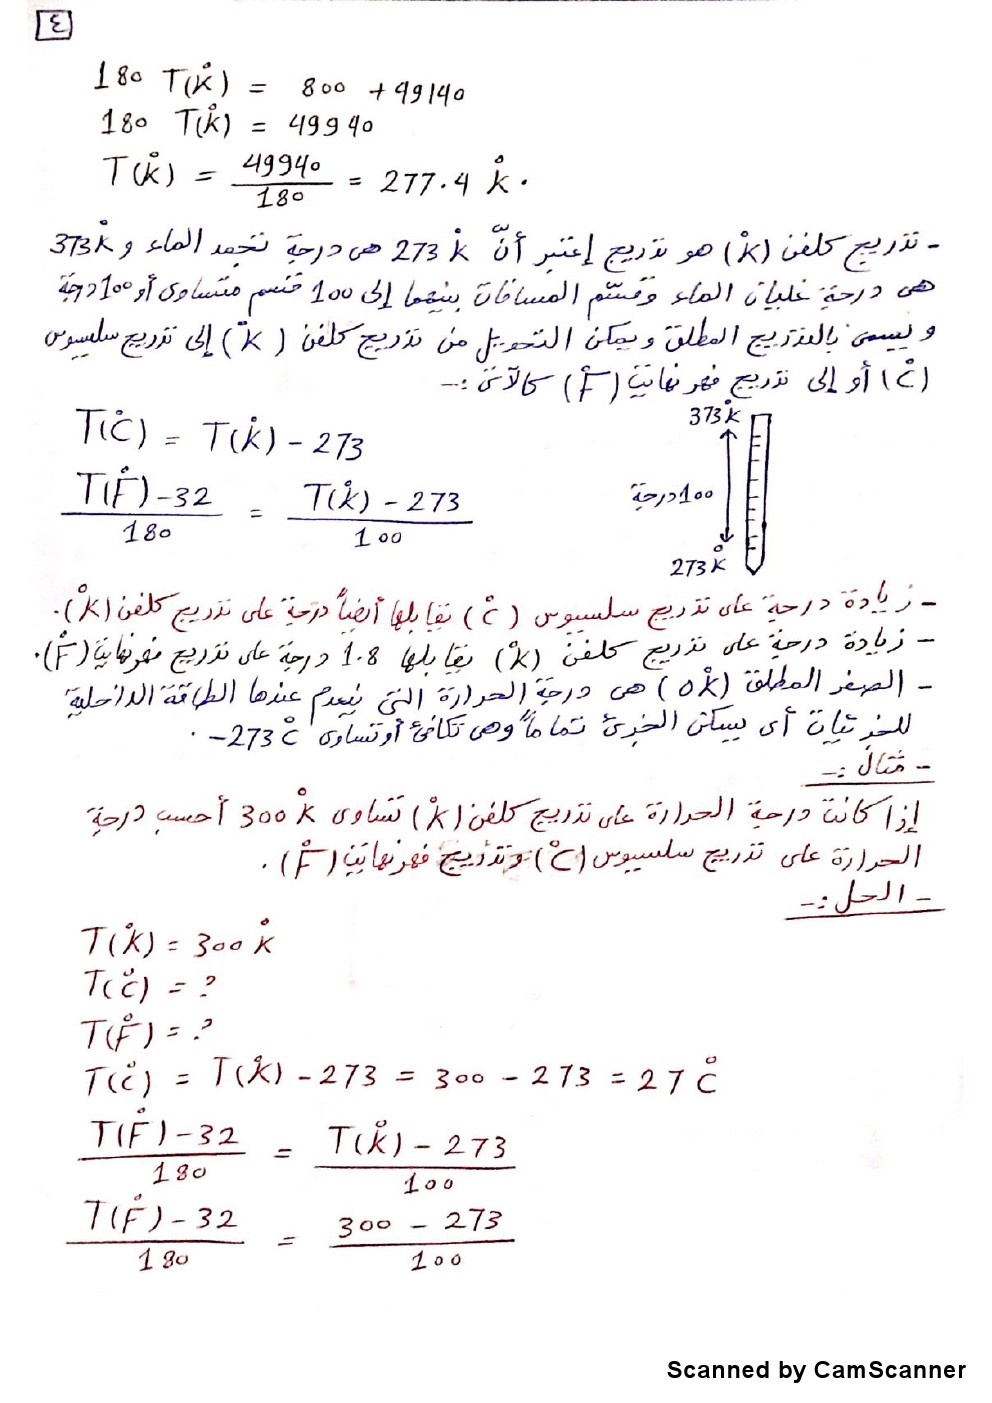 ٤
180 T(K°) = 800 + 49140
180 T(K°) = 49940
T(K°) = 49940/180 = 277.4 K°.
- تدريج كلفن (K°) هو تدريج إعتبر أنّ 273 K° هى درجة تجمد الماء و 373 K°
هى درجة غليان الماء وقسّم المسافات بينهما إلى 100 قسم متساوى أو 100 درجة
ويسمى بالتدريج المطلق ويمكن التحويل من تدريج كلفن (K°) إلى تدريج سلسيوس
(C°) أو إلى تدريج فهرنهايت (F°) كالآتى :-
T(C°) = T(K°) - 273
T(F°) - 32/180 = T(K°) - 273/100
373 K°
100 درجة
273 K°
- زيادة درجة على تدريج سلسيوس (C°) يقابلها أيضاً درجة على تدريج كلفن (K°).
- زيادة درجة على تدريج كلفن (K°) يقابلها 1.8 درجة على تدريج فهرنهايت (F°).
- الصفر المطلق (0K°) هى درجة الحرارة التى ينعدم عندها الطاقة الداخلية
للجزئيات أى يسكن الجزئ تماماً وهى تكافئ أو تساوى -273 C°.
- مثال :-
إذا كانت درجة الحرارة على تدريج كلفن (K°) تساوى 300 K° أحسب درجة
الحرارة على تدريج سلسيوس (C°) وتدريج فهرنهايت (F°).
- الحل :-
T(K°) = 300 K°
T(C°) = ?
T(F°) = ?
T(C°) = T(K°) - 273 = 300 - 273 = 27 C°
T(F°) - 32/180 = T(K°) - 273/100
T(F°) - 32/180 = 300 - 273/100
Scanned by CamScanner